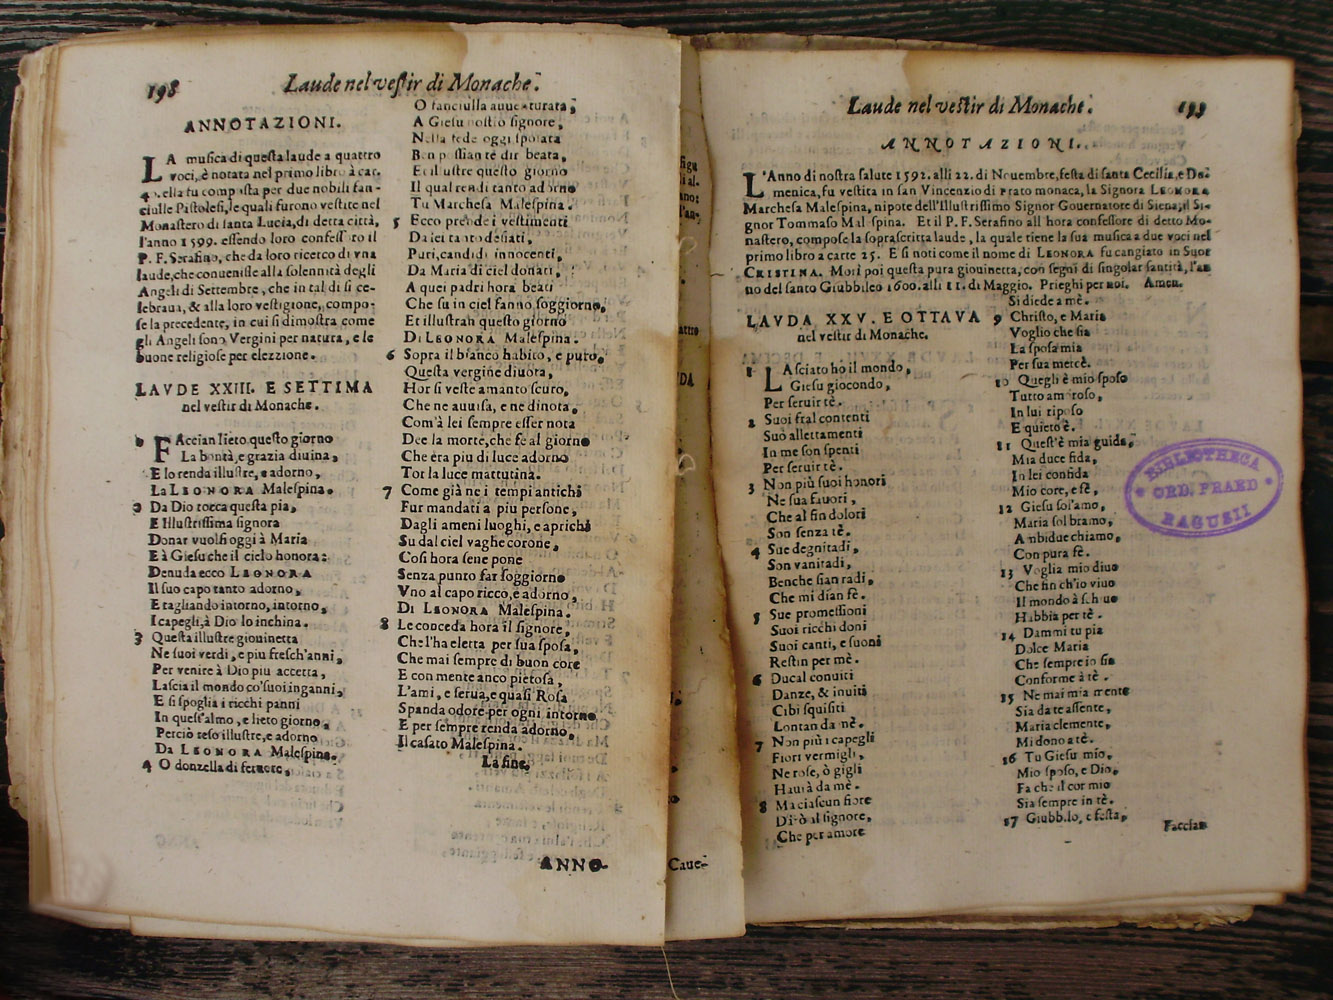 198
Laude nel vestir di Monache.
ANNOTAZIONI.
LA musica di questa laude a quattro
voci, è notata nel primo libro à car.
4. ella fu composta per due nobili fan-
ciulle Pistolesi, le quali furono vestite nel
Monastero di santa Lucia, di detta città,
l'anno 1599. essendo loro confess ro il
P. F. Serafino, che da loro ricerco di vna
laude, che conuenisse alla solennità degli
Angeli di Settembre, che in tal dì si ce-
lebraua, & alla loro vestigione, compo-
se la precedente, in cui si dimostra come
gli Angeli sono Vergini per natura, e le
buone religiose per elezzione.
LAVDE XXIII. E SETTIMA
nel vestir di Monache.
FAccian lieto questo giorno
La bontà, e grazia diuina,
E lo renda illustre, e adorno,
La LEONORA Malespina.
2 Da Dio tocca questa pia,
E Illustrissima signora
Donar vuolsi oggi à Maria
E à Giesu che il cielo honora:
Denuda ecco LEONORA
Il suo capo tanto adorno,
E tagliando intorno, intorno,
I capegli, à Dio lo inchina.
3 Questa illustre giouinetta
Ne suoi verdi, e piu fresch'anni,
Per venire à Dio più accetta,
Lascia il mondo co'suoi inganni,
E si spoglia i ricchi panni
In quest'almo, e lieto giorno,
Perciò reso illustre, e adorno
Da LEONORA Malespina.
4 O donzella di feruore,
O fanciulla auuenturata,
A Giesu nostro signore,
Nella fede oggi sposata
Ben possian te dir beata,
Et illustre questo giorno
Il qual rendi tanto adorno
Tu Marchesa Malespina.
5 Ecco prende i vestimenti
Da lei tanto desiati,
Puri, candidi innocenti,
Da Maria di ciel donati,
A quei padri hora beati
Che su in ciel fanno soggiorno,
Et illustran questo giorno
Di LEONORA Malespina.
6 Sopra il bianco habito, e puro,
Questa vergine diuota,
Hor si veste amanto scuro,
Che ne auuisa, e ne dinota,
Com'à lei sempre esser nota
Dee la morte, che fe al giorno
Che era piu di luce adorno
Tor la luce mattutina.
7 Come già ne i tempi antichi
Fur mandati a piu persone,
Dagli ameni luoghi, e aprichi
Su dal ciel vaghe corone,
Così hora sene pone
Senza punto far soggiorno
Vno al capo ricco, e adorno,
Di LEONORA Malespina.
8 Le conceda hora il signore,
Che l'ha eletta per sua sposa,
Che mai sempre di buon core
E con mente anco pietosa,
L'ami, e serua, e quasi Rosa
Spanda odore per ogni intorno
E per sempre renda adorno,
Il casato Malespina.
La fine.
ANNO-
Caue-
Laude nel vestir di Monache.
199
ANNOTAZIONI.
L'Anno di nostra salute 1592. alli 22. di Nouembre, festa di santa Cecilia, e Do-
menica, fu vestita in san Vincenzio di Prato monaca, la Signora LEONORA
Marchesa Malespina, nipote dell'Illustrissimo Signor Gouernatore di Siena, il Si-
gnor Tommaso Malespina. Et il P. F. Serafino all hora confessore di detto Mo-
nastero, compose la soprascritta laude, la quale tiene la sua musica a due voci nel
primo libro a carte 25. E si noti come il nome di LEONORA fu cangiato in Suor
CRISTINA. Morì poi questa pura giouinetta, con segni di singolar santità, l'an
no del santo Giubbileo 1600. alli 11. di Maggio. Prieghi per noi. Amen.
LAVDA XXV. E OTTAVA
nel vestir di Monache.
1 LAsciato ho il mondo,
Giesu giocondo,
Per seruir tè.
2 Suoi fral contenti
Suò allettamenti
In me son spenti
Per seruir tè.
3 Non più suoi honori
Ne sua fauori,
Che al fin dolori
Son senza tè.
4 Sue degnitadi,
Son vanitadi,
Benche sian radi,
Che mi dian fè.
5 Sue promessioni
Suoi ricchi doni
Suoi canti, e suoni
Restin per mè.
6 Ducal conuiti
Danze, & inuiti
Cibi squisiti
Lontan da mè.
7 Non più i capegli
Fiori vermigli,
Ne rose, ò gigli
Hauià da mè.
8 Ma ciascun fiore
Dirò al signore,
Che per amore
Si diede a mè.
9 Christo, e Maria
Voglio che sia
La sposa mia
Per sua mercè.
10 Quegli è mio sposo
Tutto amoroso,
In lui riposo
E quieto è.
11 Quest'è mia guida,
Mia duce fida,
In lei confida
Mio core, e fè,
12 Giesu sol'amo,
Maria sol bramo,
Ambidue chiamo,
Con pura fè.
13 Voglia mio diuo
Che fin ch'io viuo
Il mondo à schiuo
Habbia per tè.
14 Dammi tu pia
Dolce Maria
Che sempre io sia
Conforme à tè.
15 Ne mai mia mente
Sia da te assente,
Maria clemente,
Mi dono a tè.
16 Tu Giesu mio,
Mio sposo, e Dio,
Fa che il cor mio
Sia sempre in tè.
17 Giubbilo, e festa,
Faccian
BIBLIOTHECA
ORD. PRAED
RAGUSII